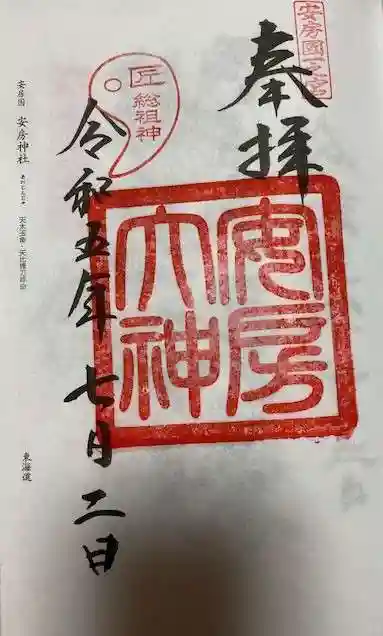 安房國一之宮
奉拝
安房
大神
匠
総祖神
令和五年 七月 二日
安房国 安房神社
天太玉命・天比理刀咩命
東海道